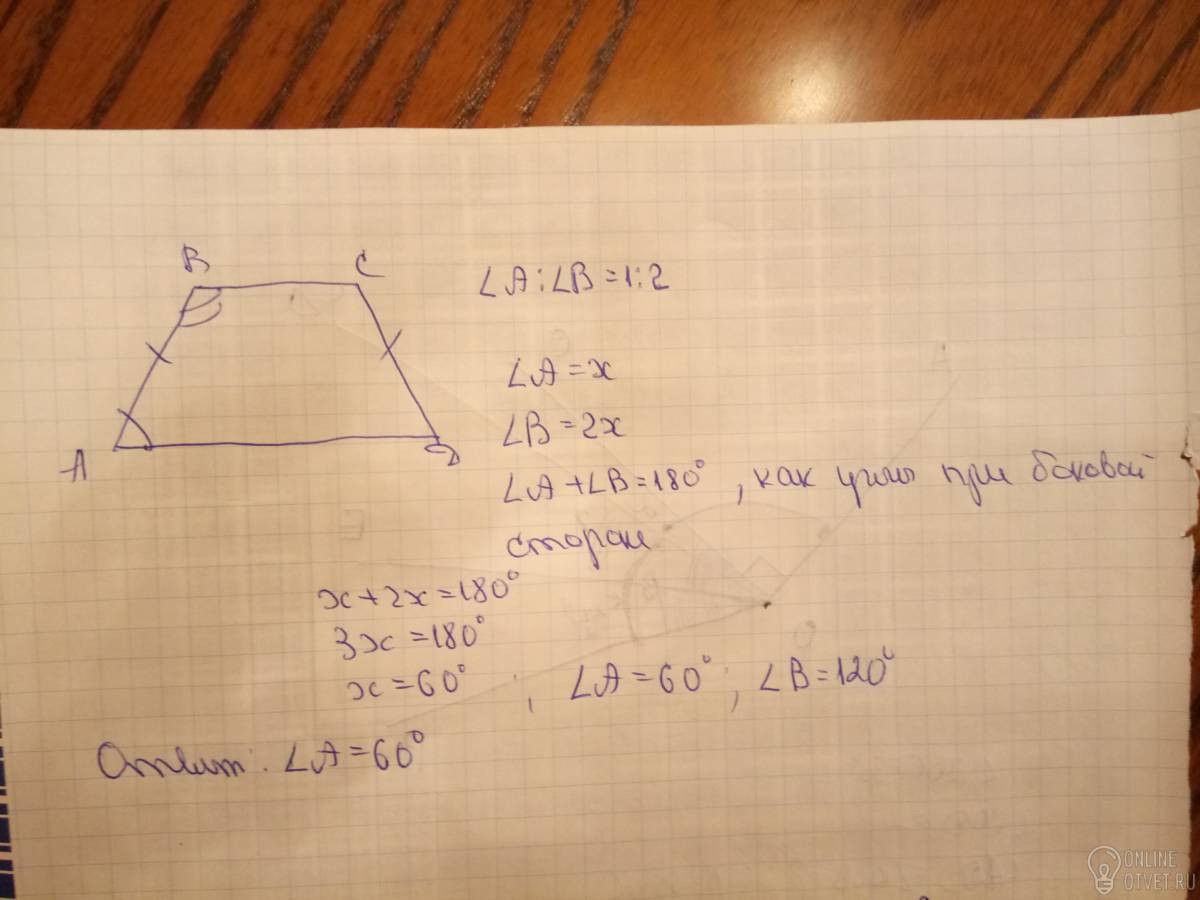 B C
A D
∠A:∠B=1:2
∠A=x
∠B=2x
∠A+∠B=180°, как углы при боковой
стороне
x+2x=180°
3x=180°
x=60° ; ∠A=60° ; ∠B=120°
Ответ: ∠A=60°
ONLINE
OTVET.RU